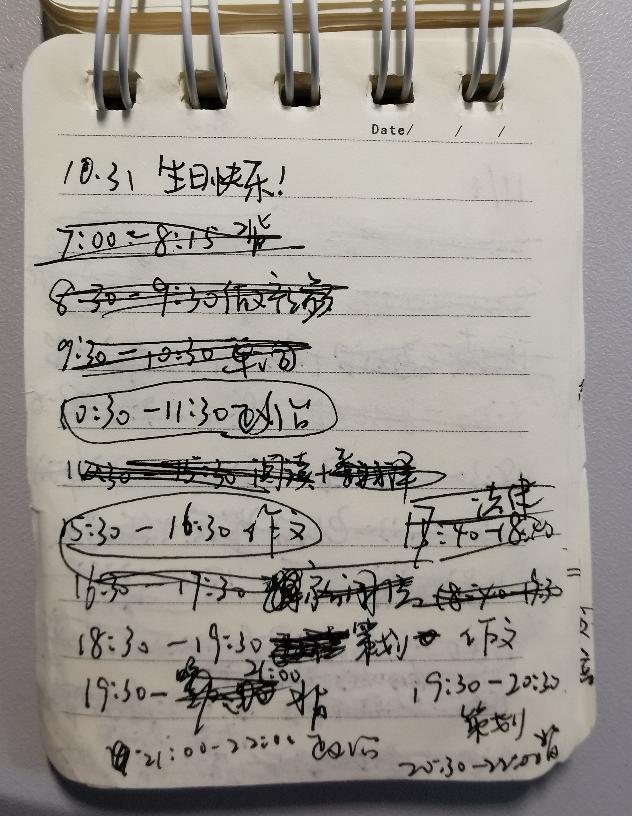 Date/ / /
10.31 生日快乐!
7:00-8:15 背
8:30-9:30 作文
9:30-10:30 单词
10:30-11:30 政治
15:30 阅读+翻译
法律
15:30-16:30 作文 17:40-18:40
16:30-17:30
18:30-19:30 策划 作文
21:00
19:30- 背 19:30-20:30
策划
21:00-22:00 政治 20:30-22:00 背